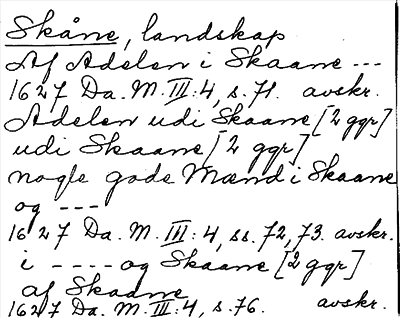 Skåne, landskap
Af Adelen i Skaane ---
1627 Da. M. III:4, s. 71. avskr.
Adelen udi Skaane [2 ggr]
udi Skaane [2 ggr]
nogle gode Mænd i Skaane
og ---
1627 Da. M. III:4, ss. 72, 73. avskr.
i ---- og Skaane [2 ggr]
af Skaane
1627 Da. M. III:4, s. 76. avskr.